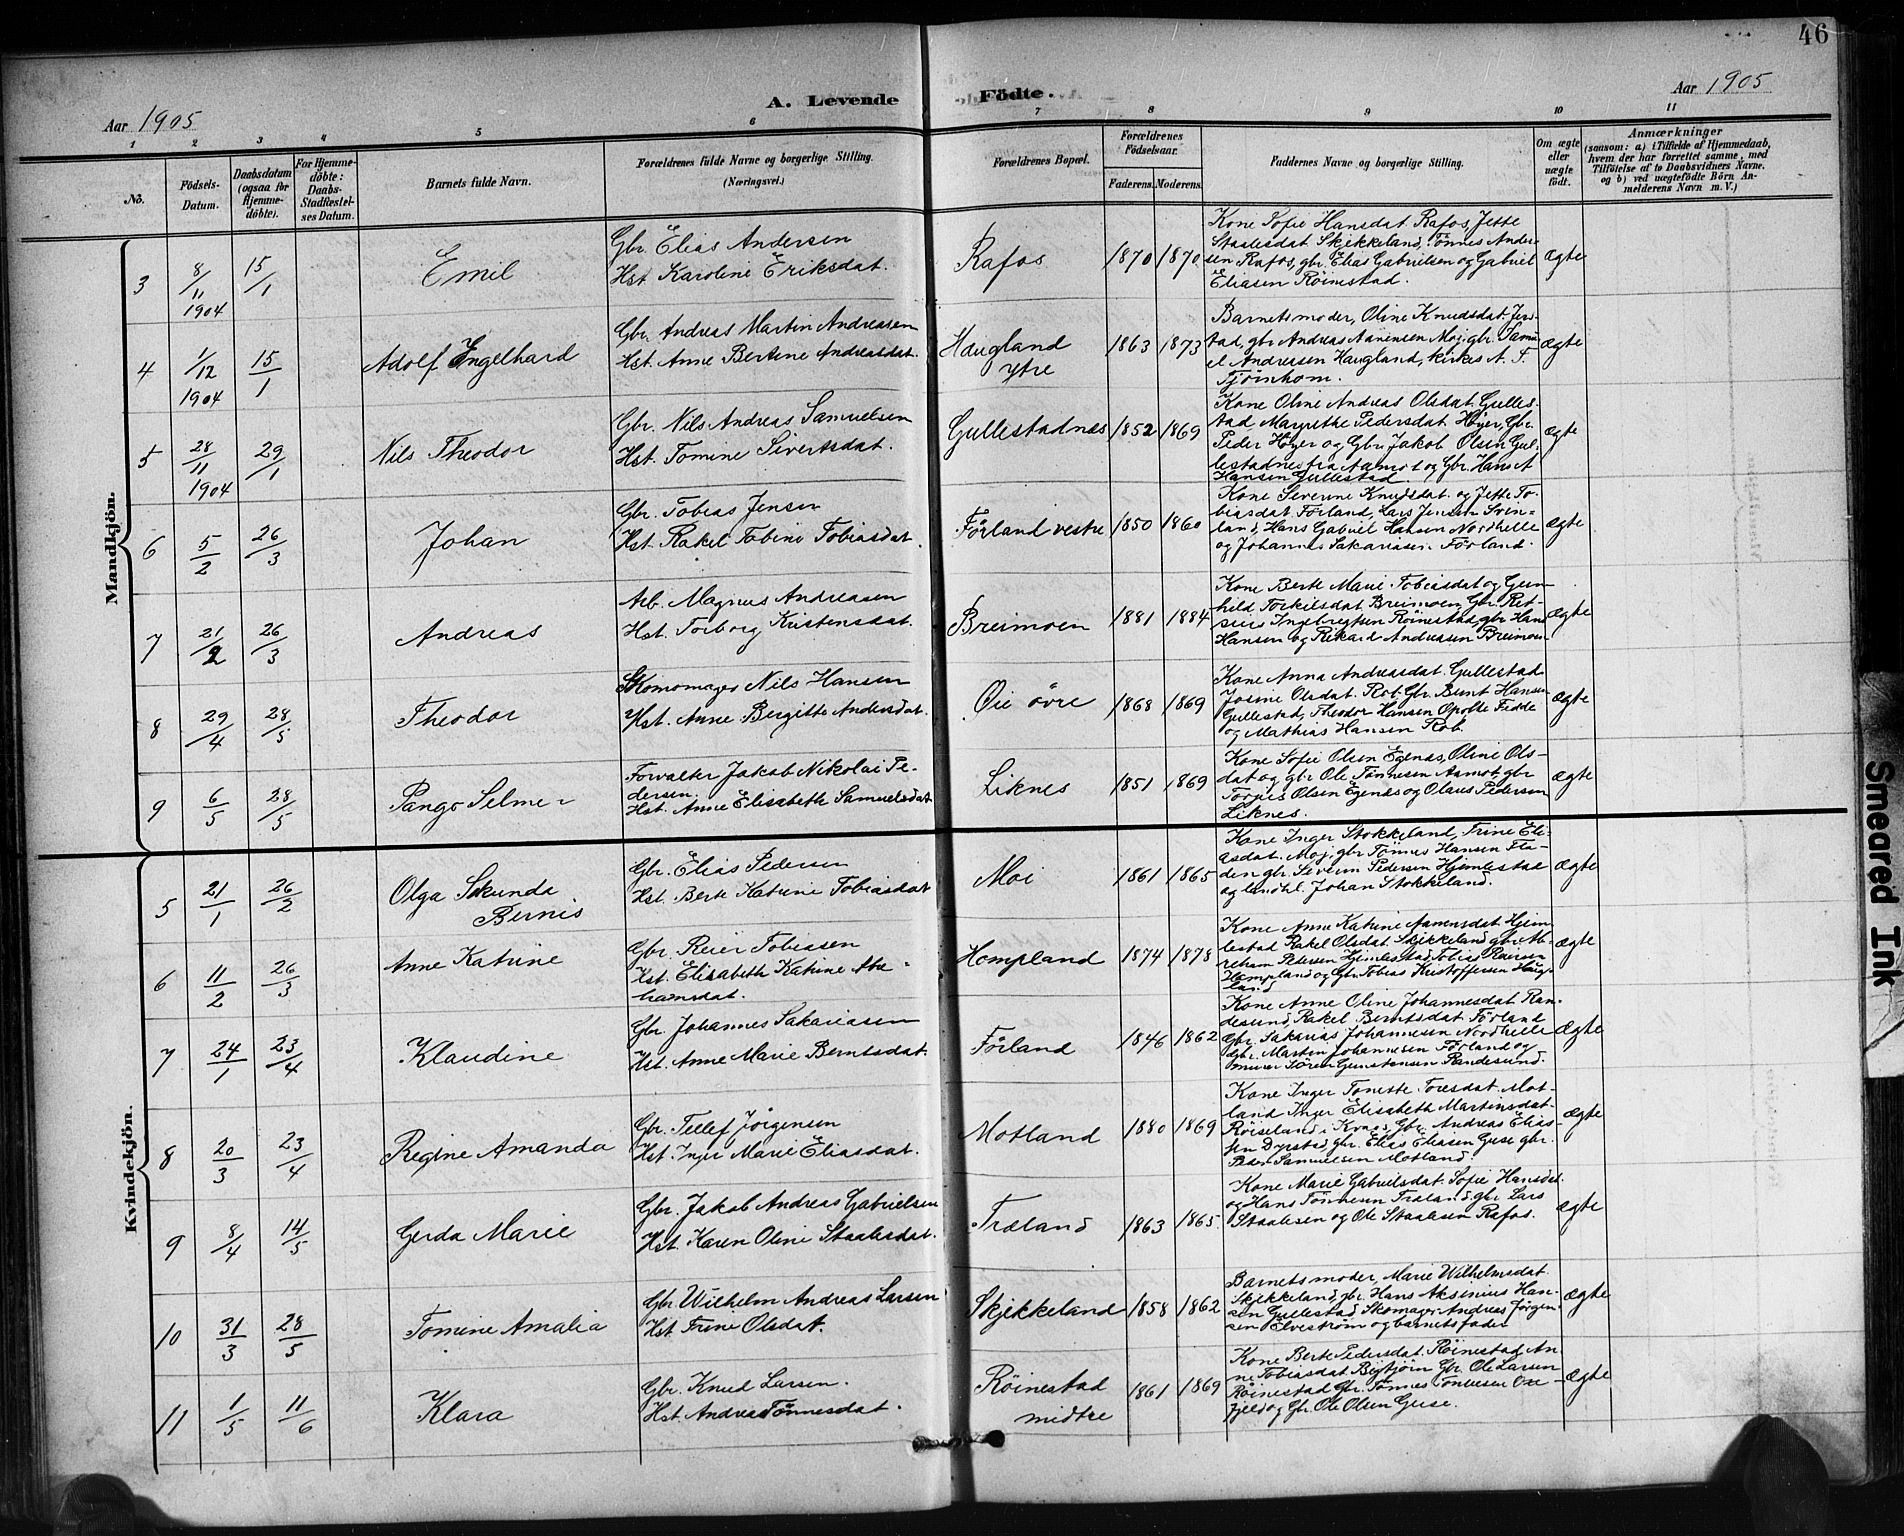 46
Aar 1905
A. Levende Födte.
Aar 1905
1 2 3 4 5 6 7 8 9 10 11
No.
Födsels-Datum.
Daabsdatum (ogsaa for Hjemmedöbte).
For Hjemmedöbte: Daabs-Stadfæstelses Datum.
Barnets fulde Navn.
Forældrenes fulde Navne og borgerlige Stilling.
(Næringsvei.)
Forældrenes Bopæl.
Forældrenes Födselsaar.
Faderens. Moderens.
Faddernes Navne og borgerlige Stilling.
Om ægte eller uægte födt.
Anmærkninger
(saasom: a) i Tilfælde af Hjemmedaab, hvem der har forrettet samme, med Tilföielse af to Daabsvidners Navne. og b) ved uægtefödte Börn Anmelderens Navn m. V.)
Mandkjön.
3 8/11 1904 15/1 Emil
Gbr. Elias Andersen
Hst. Karoline Eriksdat.
Rafos 1870 1870
Kone Sofie Hansdat. Rafos, Jette
Staalesdat Skjekkeland, Tönnes Ander-
sen Rafos, gbr. Elias Gabrielsen og Gabriel
Eliasen Röinestad.
Ægte
4 1/12 1904 15/1 Adolf Engelhard
Gbr. Andreas Martin Andreasen
Hst. Anne Bertine Andreasdat.
Haugland ytre 1863 1873
Barnets moder, Oline Knudsdat.
gbr Andreas Aanensen Moj, gbr. Samu-
el Andreasen Haugland, kirkes. A. T.
Tjörnhom.
Ægte
5 28/11 1904 29/1 Nils Theodor
Gbr. Nils Andreas Samuelsen
Hst. Tomine Sivertsdat.
Gullestadnæs 1852 1869
Kone Oline Andreas Olsdat. Gulles-
tad Margrethe Pedersdat Höyer, Gbr.
Peder Höyer og Gbr. Jakob Olsen Gul-
lestadnes fra Aamot og Gbr. Hans A
Hansen Gullestad.
Ægte
6 5/2 26/3 Johan
Gbr. Tobias Jensen
Hst. Rakel Tobine Tobiasdat.
Förland vestre 1850 1860
Kone Severine Knudsdat. og Jette To-
biasdat. Förland, Lars Jensen Svin-
land, Hans Gabriel Hansen Nordhelle
og Johannes Sakariasen Förland.
Ægte
7 21/2 26/3 Andreas
Arb. Magnus Andreasen
Hst. Torborg Kristensdat.
Breimoen 1881 1884
Kone Berte Marie Tobiasdat og Gun-
hild Torkilsdat Breimoen, Gbr.
Ingebregtsen Röinestad, gbr Hans
Hansen og Rikard Andreasen Breimoen
Ægte
8 29/4 28/5 Theodor
Skomager Nils Hansen
Hst. Anne Bergitte Andersdat.
Öie övre 1868 1869
Kone Anna Andreasdat. Gullestad
Josine Olsdat. Rob, Gbr. Bent Hansen
Gullestad, Theodor Hansen Opofte Fedde
og Mathias Hansen Rob.
Ægte
9 6/5 28/5 Pango Selmer
Forvalter Jakob Nikolai Pe-
dersen.
Hst. Anne Elisabeth Samuelsdat
Liknes 1851 1869
Kone Sofie Olsen Egenæs, Oline Ols-
dat og gbr. Ole Tönnesen Aamot, gbr
Tönnes Olsen Egenæs og Olaus Pedersen
Liknes.
Ægte
Kvindekjön.
5 21/1 26/2 Olga Sekunda
Bernis
Gbr. Elias Pedersen
Hst. Berte Katrine Tobiasdat
Moi 1861 1865
Kone Inger Stokkeland, Trine Eli-
asdat. Moj, gbr Tönnes Hansen Fla-
den gbr. Severin Pedersen Hjemlestad
og landhl. Johan Stokkeland.
Ægte
6 11/2 26/3 Anne Katrine
Gbr. Reier Tobiasen
Hst. Elisabeth Katrine Abra-
hamsdat.
Hompland 1874 1878
Kone Anne Katrine Aanensdat Hjem-
lestad Rakel Olsdat. Skjekkeland gbr. Ab-
raham Pedersen Hjemlestad Tobias Reiersen
Hompland og Gbr. Tobias Kristoffersen Haug-
land
Ægte
7 24/1 23/4 Klaudine
Gbr. Johannes Sakariasen
Hst. Anne Marie Berntsdat.
Förland 1846 1862
Kone Anne Oline Johannesdat Ran-
desund, Rakel Berntsdat. Förland
Gbr. Sakarias Johannesen Nordhelle
Gbr. Martin Johannesen Förland og
murer Sören Gunstensen Randesund.
Ægte
8 20/3 23/4 Regine Amanda
Gbr. Tellef Jörgensen
Hst. Inger Marie Eliasdat.
Motland 1880 1869
Kone Inger Tomette Toresdat. Mot-
land Inger Elisabeth Martinsdat.
Röiseland i Kvaas, Gbr. Andreas Elias-
sen Dyrstad, gbr. Elias Eliasen Guse gbr.
Peder Samuelsen Motland.
Ægte
9 8/4 14/5 Gerda Marie
Gbr. Jakob Andreas Gabrielsen
Hst. Karen Oline Staalesdat.
Træland 1863 1865
Kone Marie Gabrielsdat. Sofie Hansdat.
og Hans Tönnesen Træland, gbr Lars
Staalesen og Ole Staalesen Rafos.
Ægte
10 31/3 28/5 Tomine Amalia
Gbr. Wilhelm Andreas Larsen
Hst. Trine Olsdat.
Skjekkeland 1858 1862
Barnets moder, Marie Wilhelmsdat.
Skjekkeland, gbr. Hans Aksinius Han-
sen Gullestad Skomager Andreas Jörgen-
sen Elveström og barnets fader
Ægte
11 1/5 11/6 Klara
Gbr. Knud Larsen.
Hst. Andrea Tönnesdat.
Röinestad midtre 1861 1869
Kone Berte Pedersdat. Röinestad An-
ne Tobiasdat Bigtjörn Gbr. Ole Larsen
Röinestad Gbr. Tönnes Tönnesen Oxe-
fjeld og Gbr. Ole Olsen Guse.
Ægte
Smeared Ink